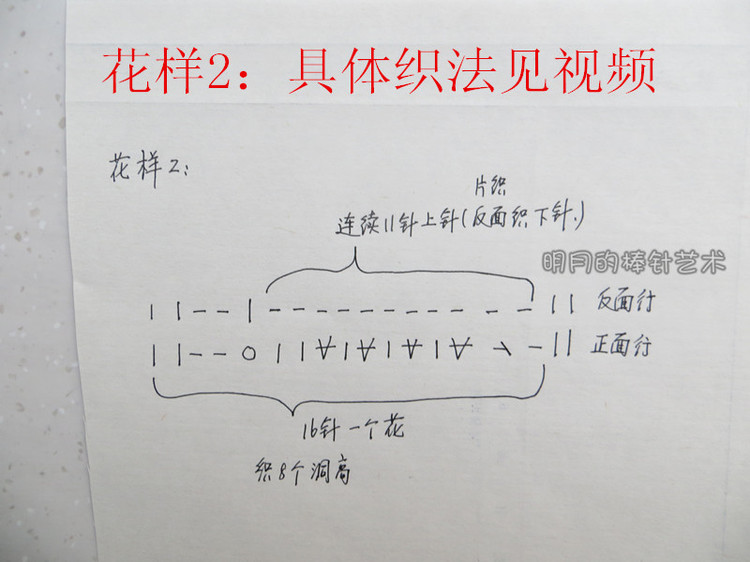 花样2：具体织法见视频
花样2:
片织
连续11针上针(反面织下针.)
明月的棒针艺术
| | - - | - - - - - - - - - - - | | 反面行
| | - - O | | ∀ | ∀ | ∀ | ∀ \ - | | 正面行
16针一个花
织8个洞高